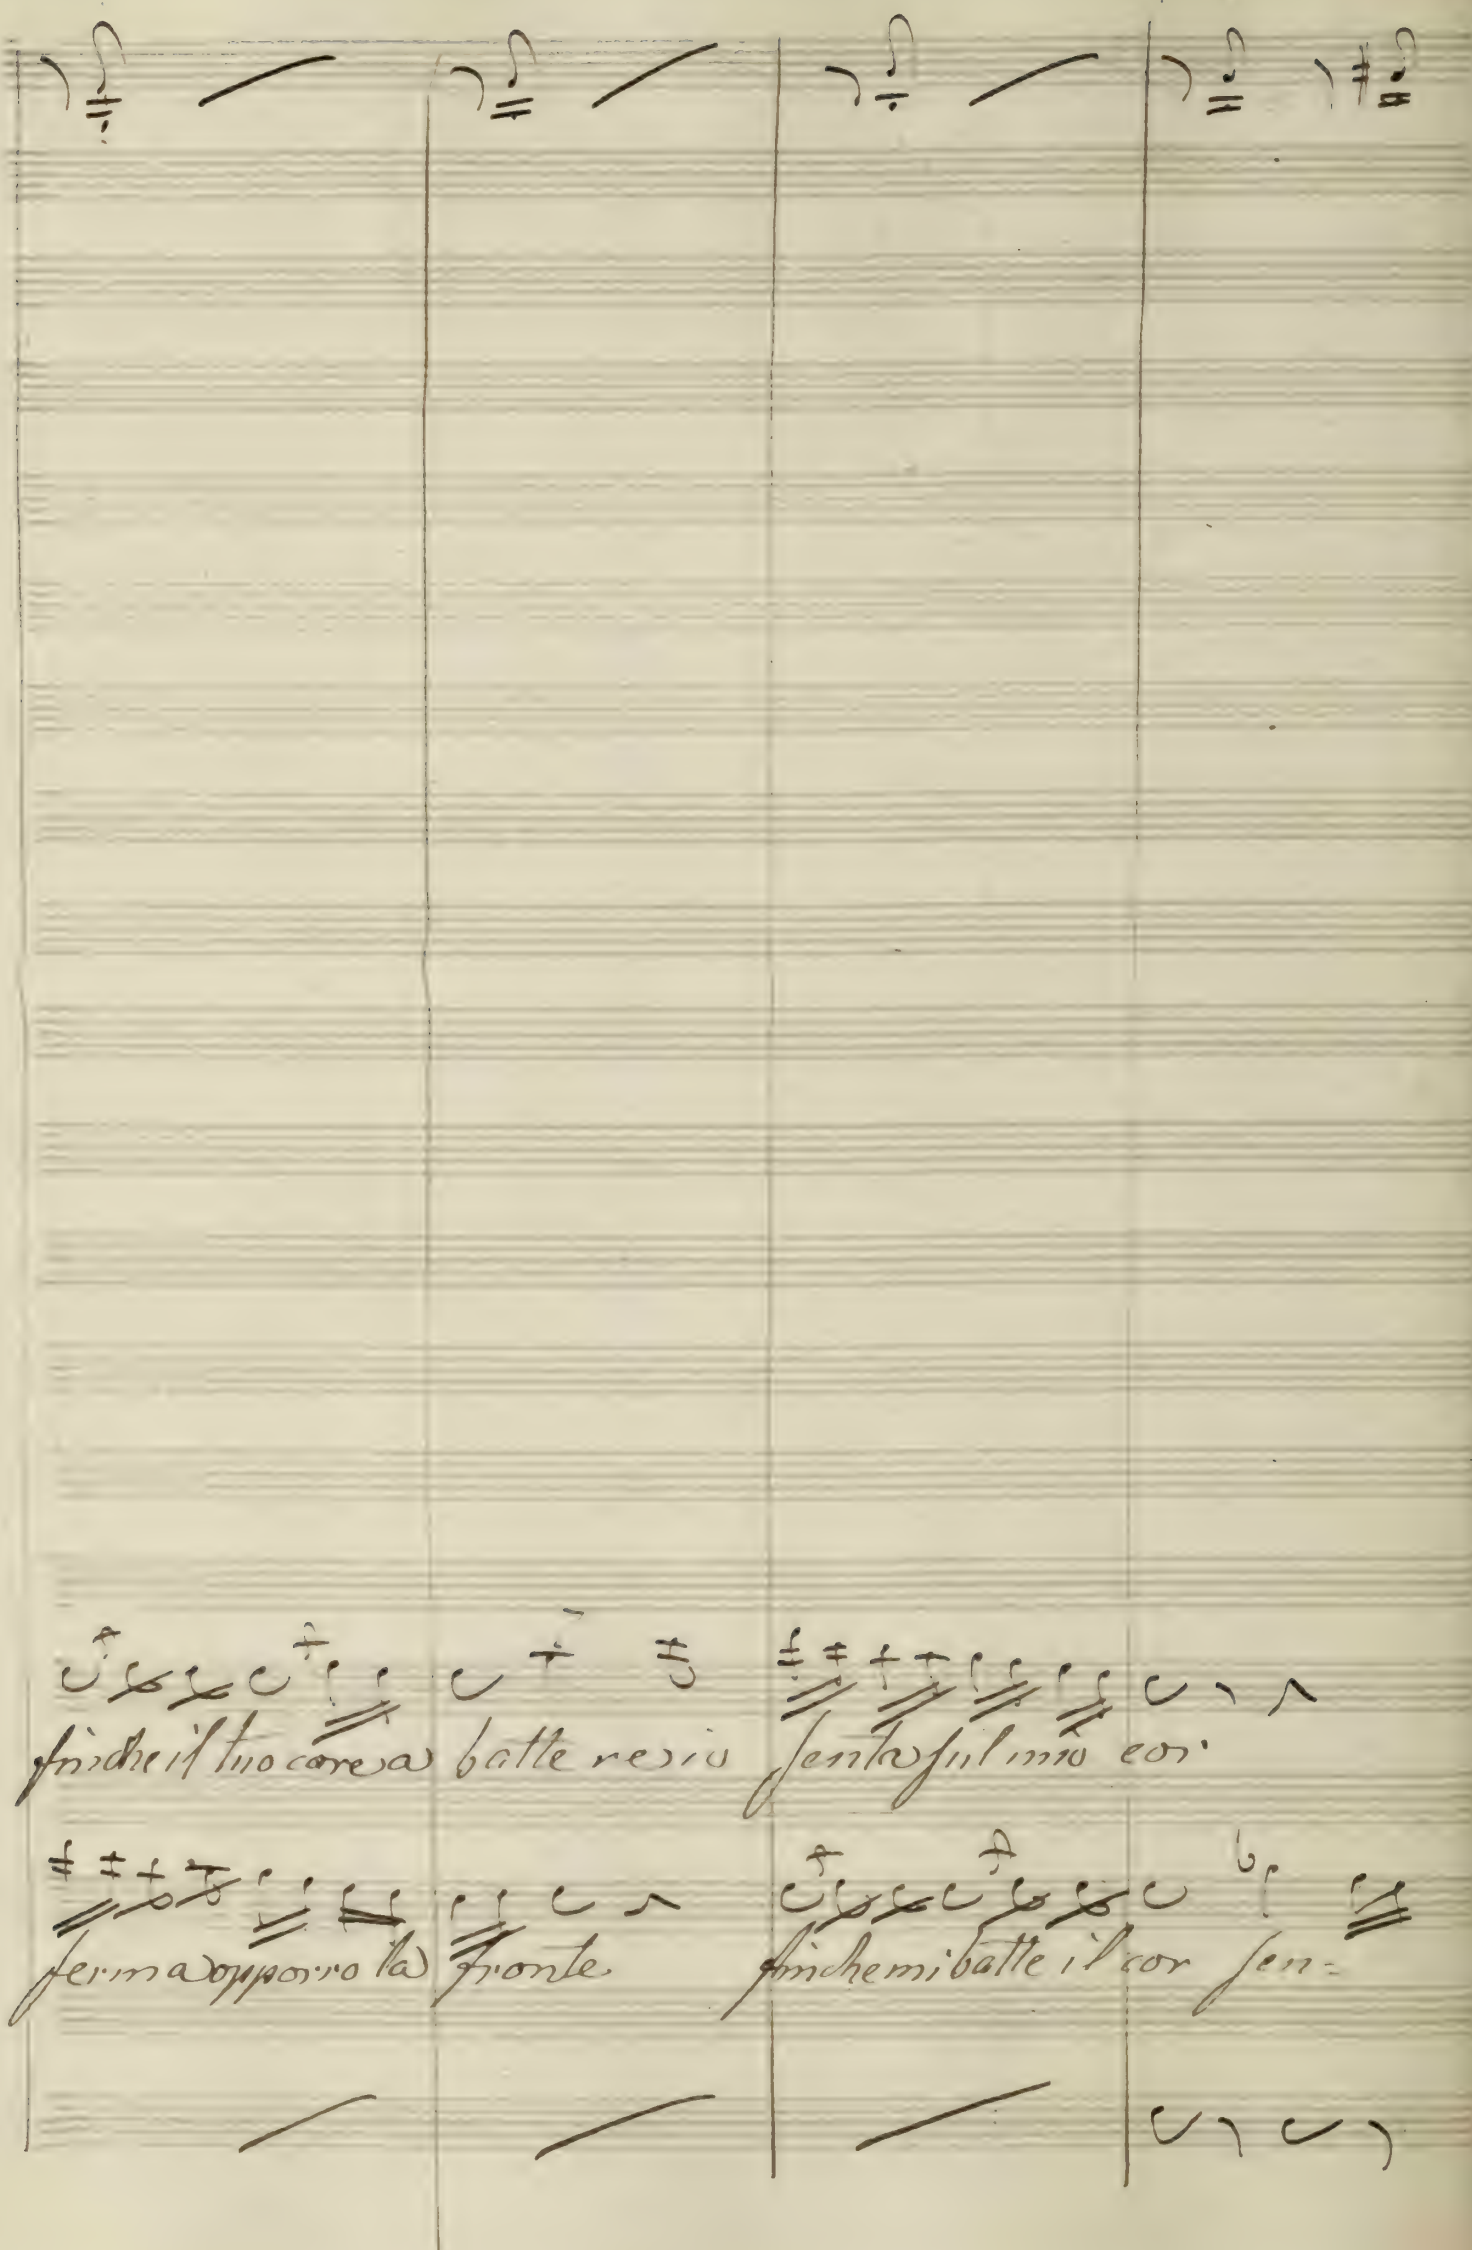 finche il tuo core a battere io senta sul mio cor
ferma opporro la fronte finche mi batte il cor sen=